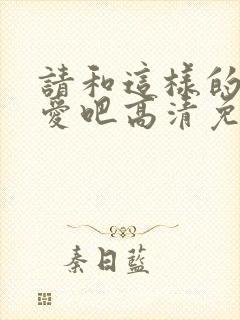 請和這樣的
愛吧高清免
秦日藍